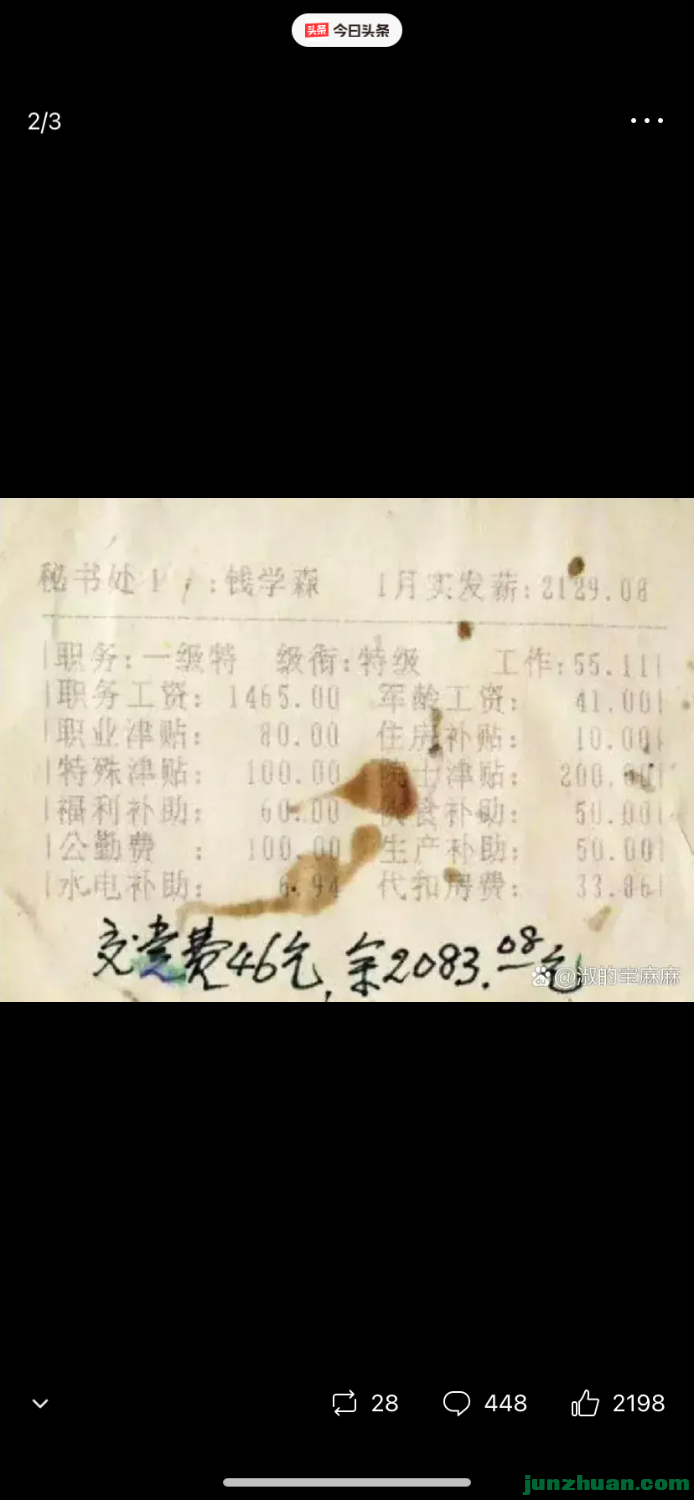 头条 今日头条
2/3
秘书处 : 钱学森 1月实发薪:2129.08
职务:一级特 级衔:特级 工作:55.11
职务工资: 1465.00 军龄工资: 41.00
职业津贴: 80.00 住房补贴: 10.00
特殊津贴: 100.00 院士津贴: 200.00
福利补助: 60.00 伙食补助: 50.00
公勤费 : 100.00 生产补助: 50.00
水电补助: 6.94 代扣房费: 33.86
交党费46元,余2083.08元
@淑的宝麻麻
28 448 2198
junzhuan.com